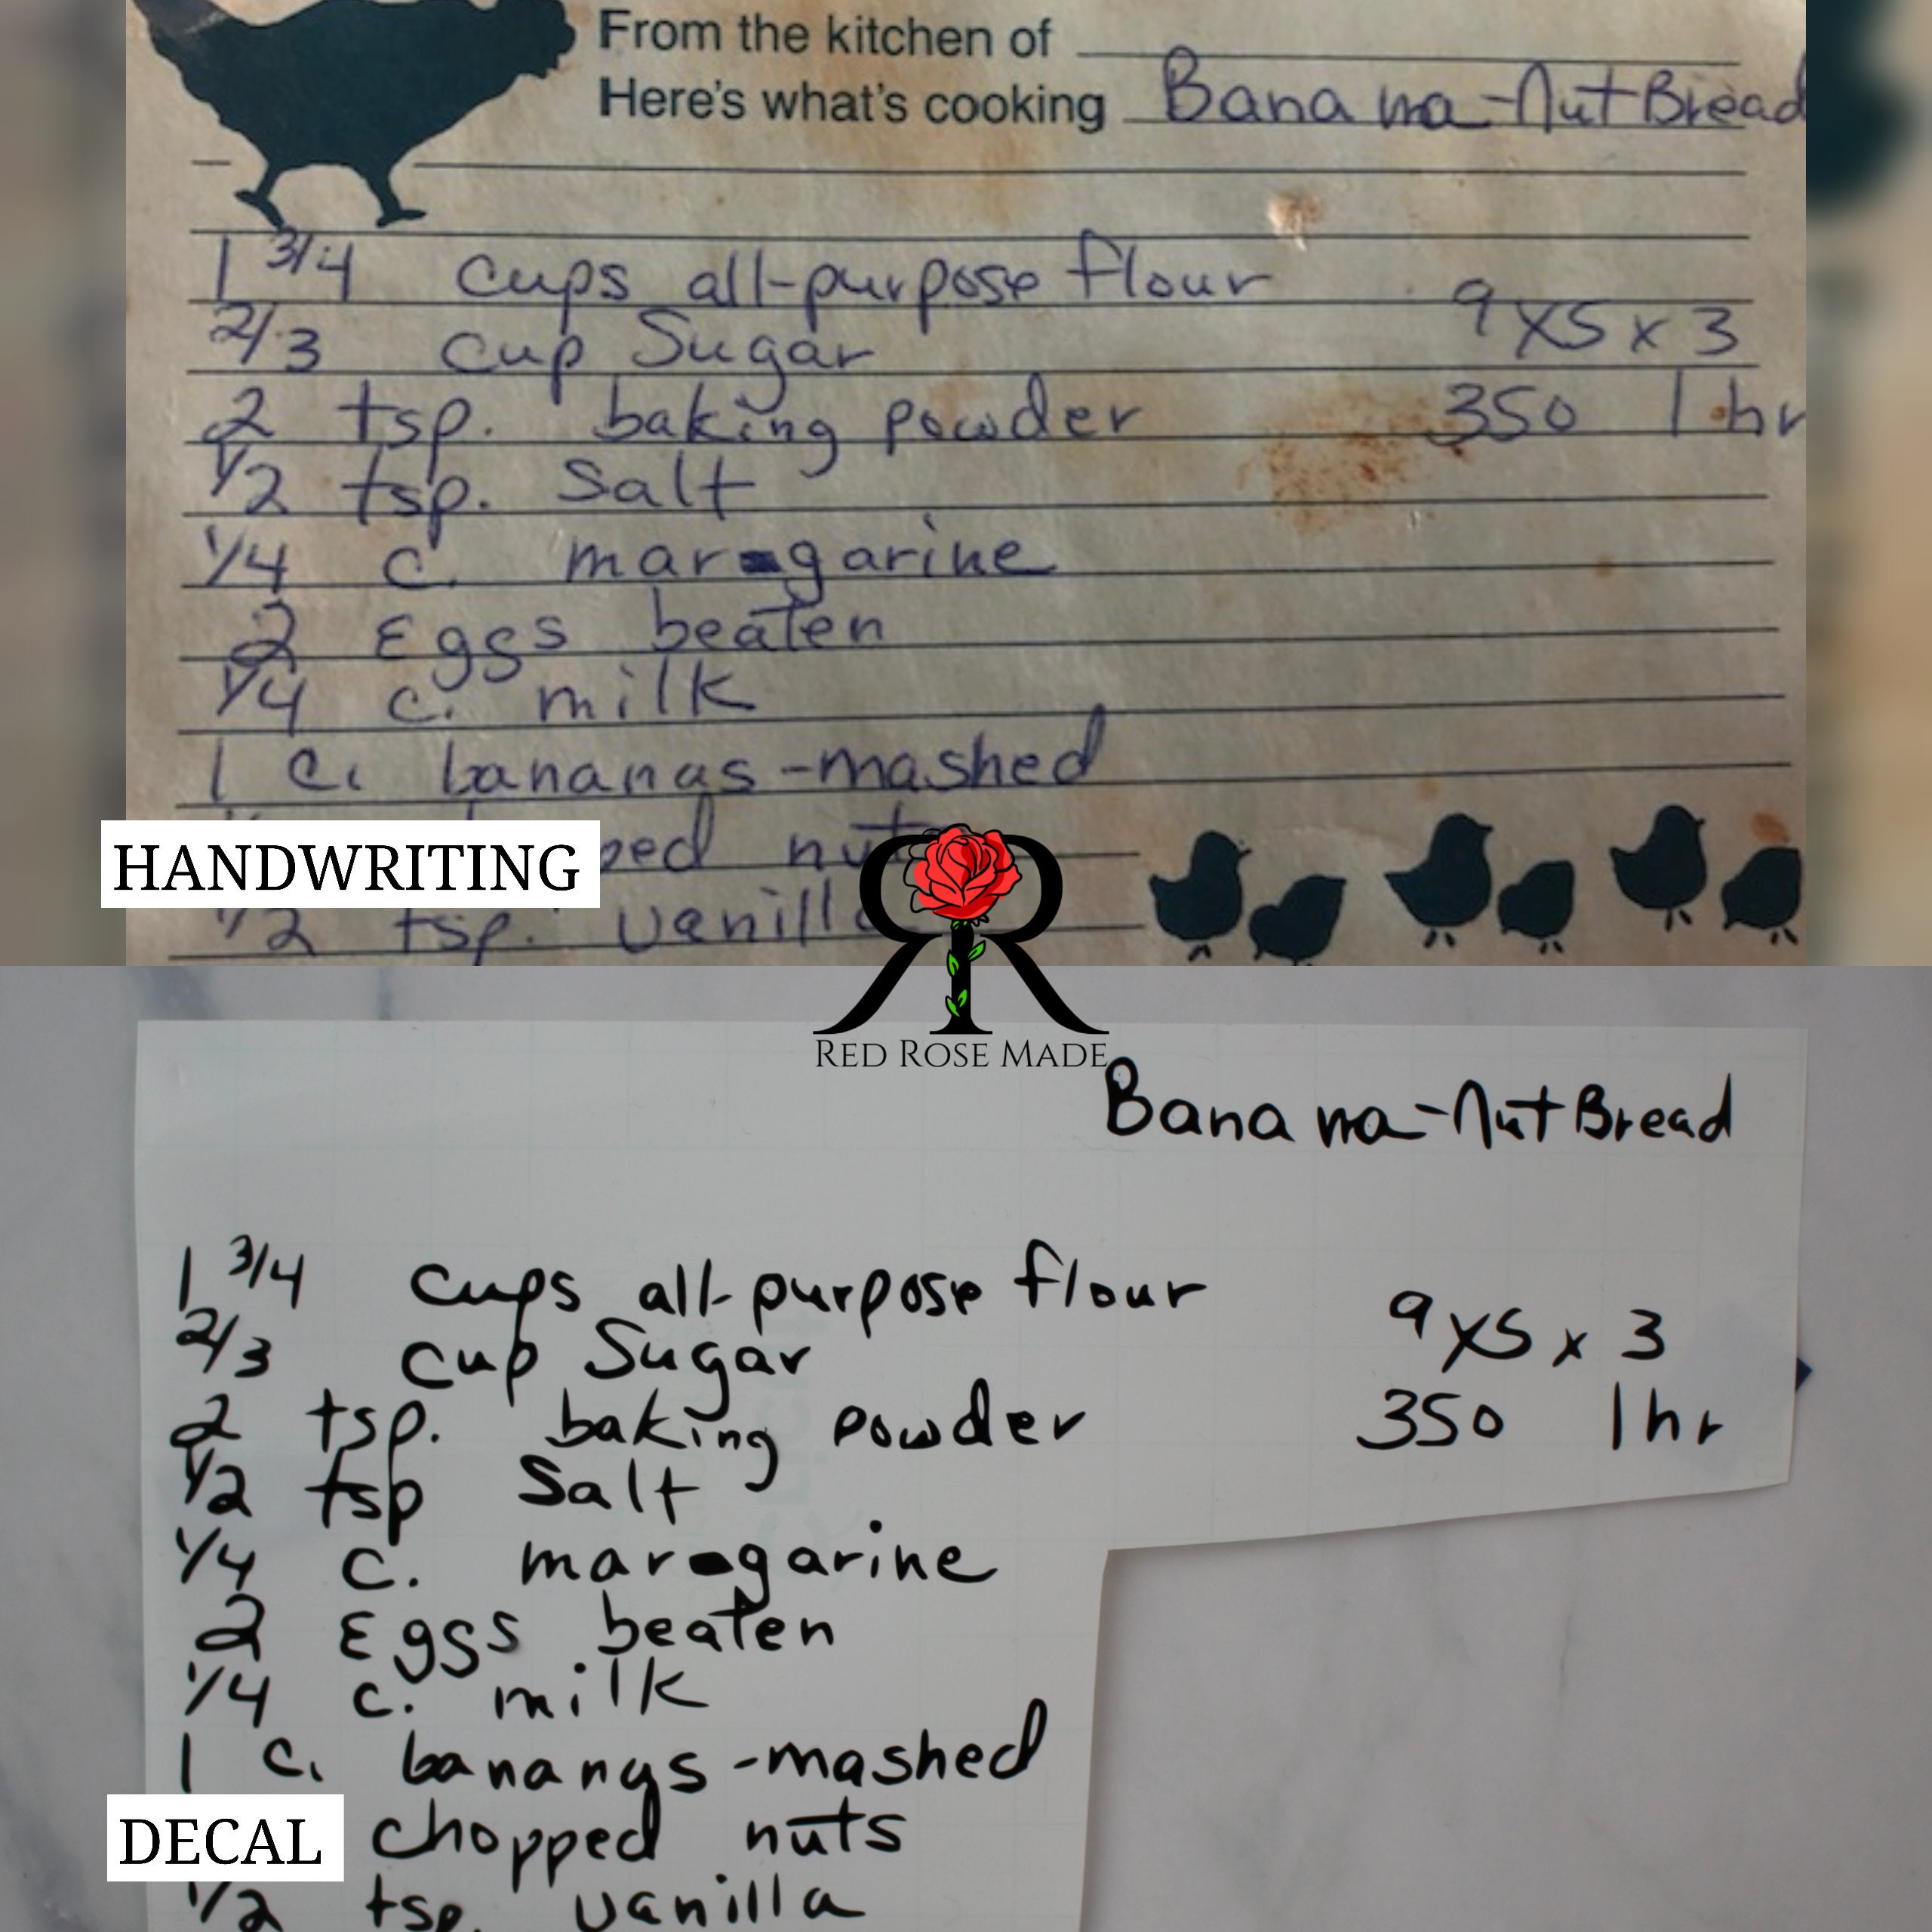 From the kitchen of
Here's what's cooking Banana-Nut Bread
1 3/4 cups all-purpose flour
2/3 cup Sugar 9x5x3
2 tsp. baking powder 350 1 hr
1/2 tsp. Salt
1/4 c. margarine
2 Eggs beaten
1/4 c. milk
1 c. bananas-mashed
HANDWRITING nuts
1/2 tsp. vanilla
RED ROSE MADE
Banana-Nut Bread
1 3/4 cups all-purpose flour
2/3 cup Sugar 9x5x3
2 tsp. baking powder 350 1 hr
1/2 tsp Salt
1/4 c. margarine
2 Eggs beaten
1/4 c. milk
1 c. bananas-mashed
DECAL chopped nuts
1/2 tsp. vanilla